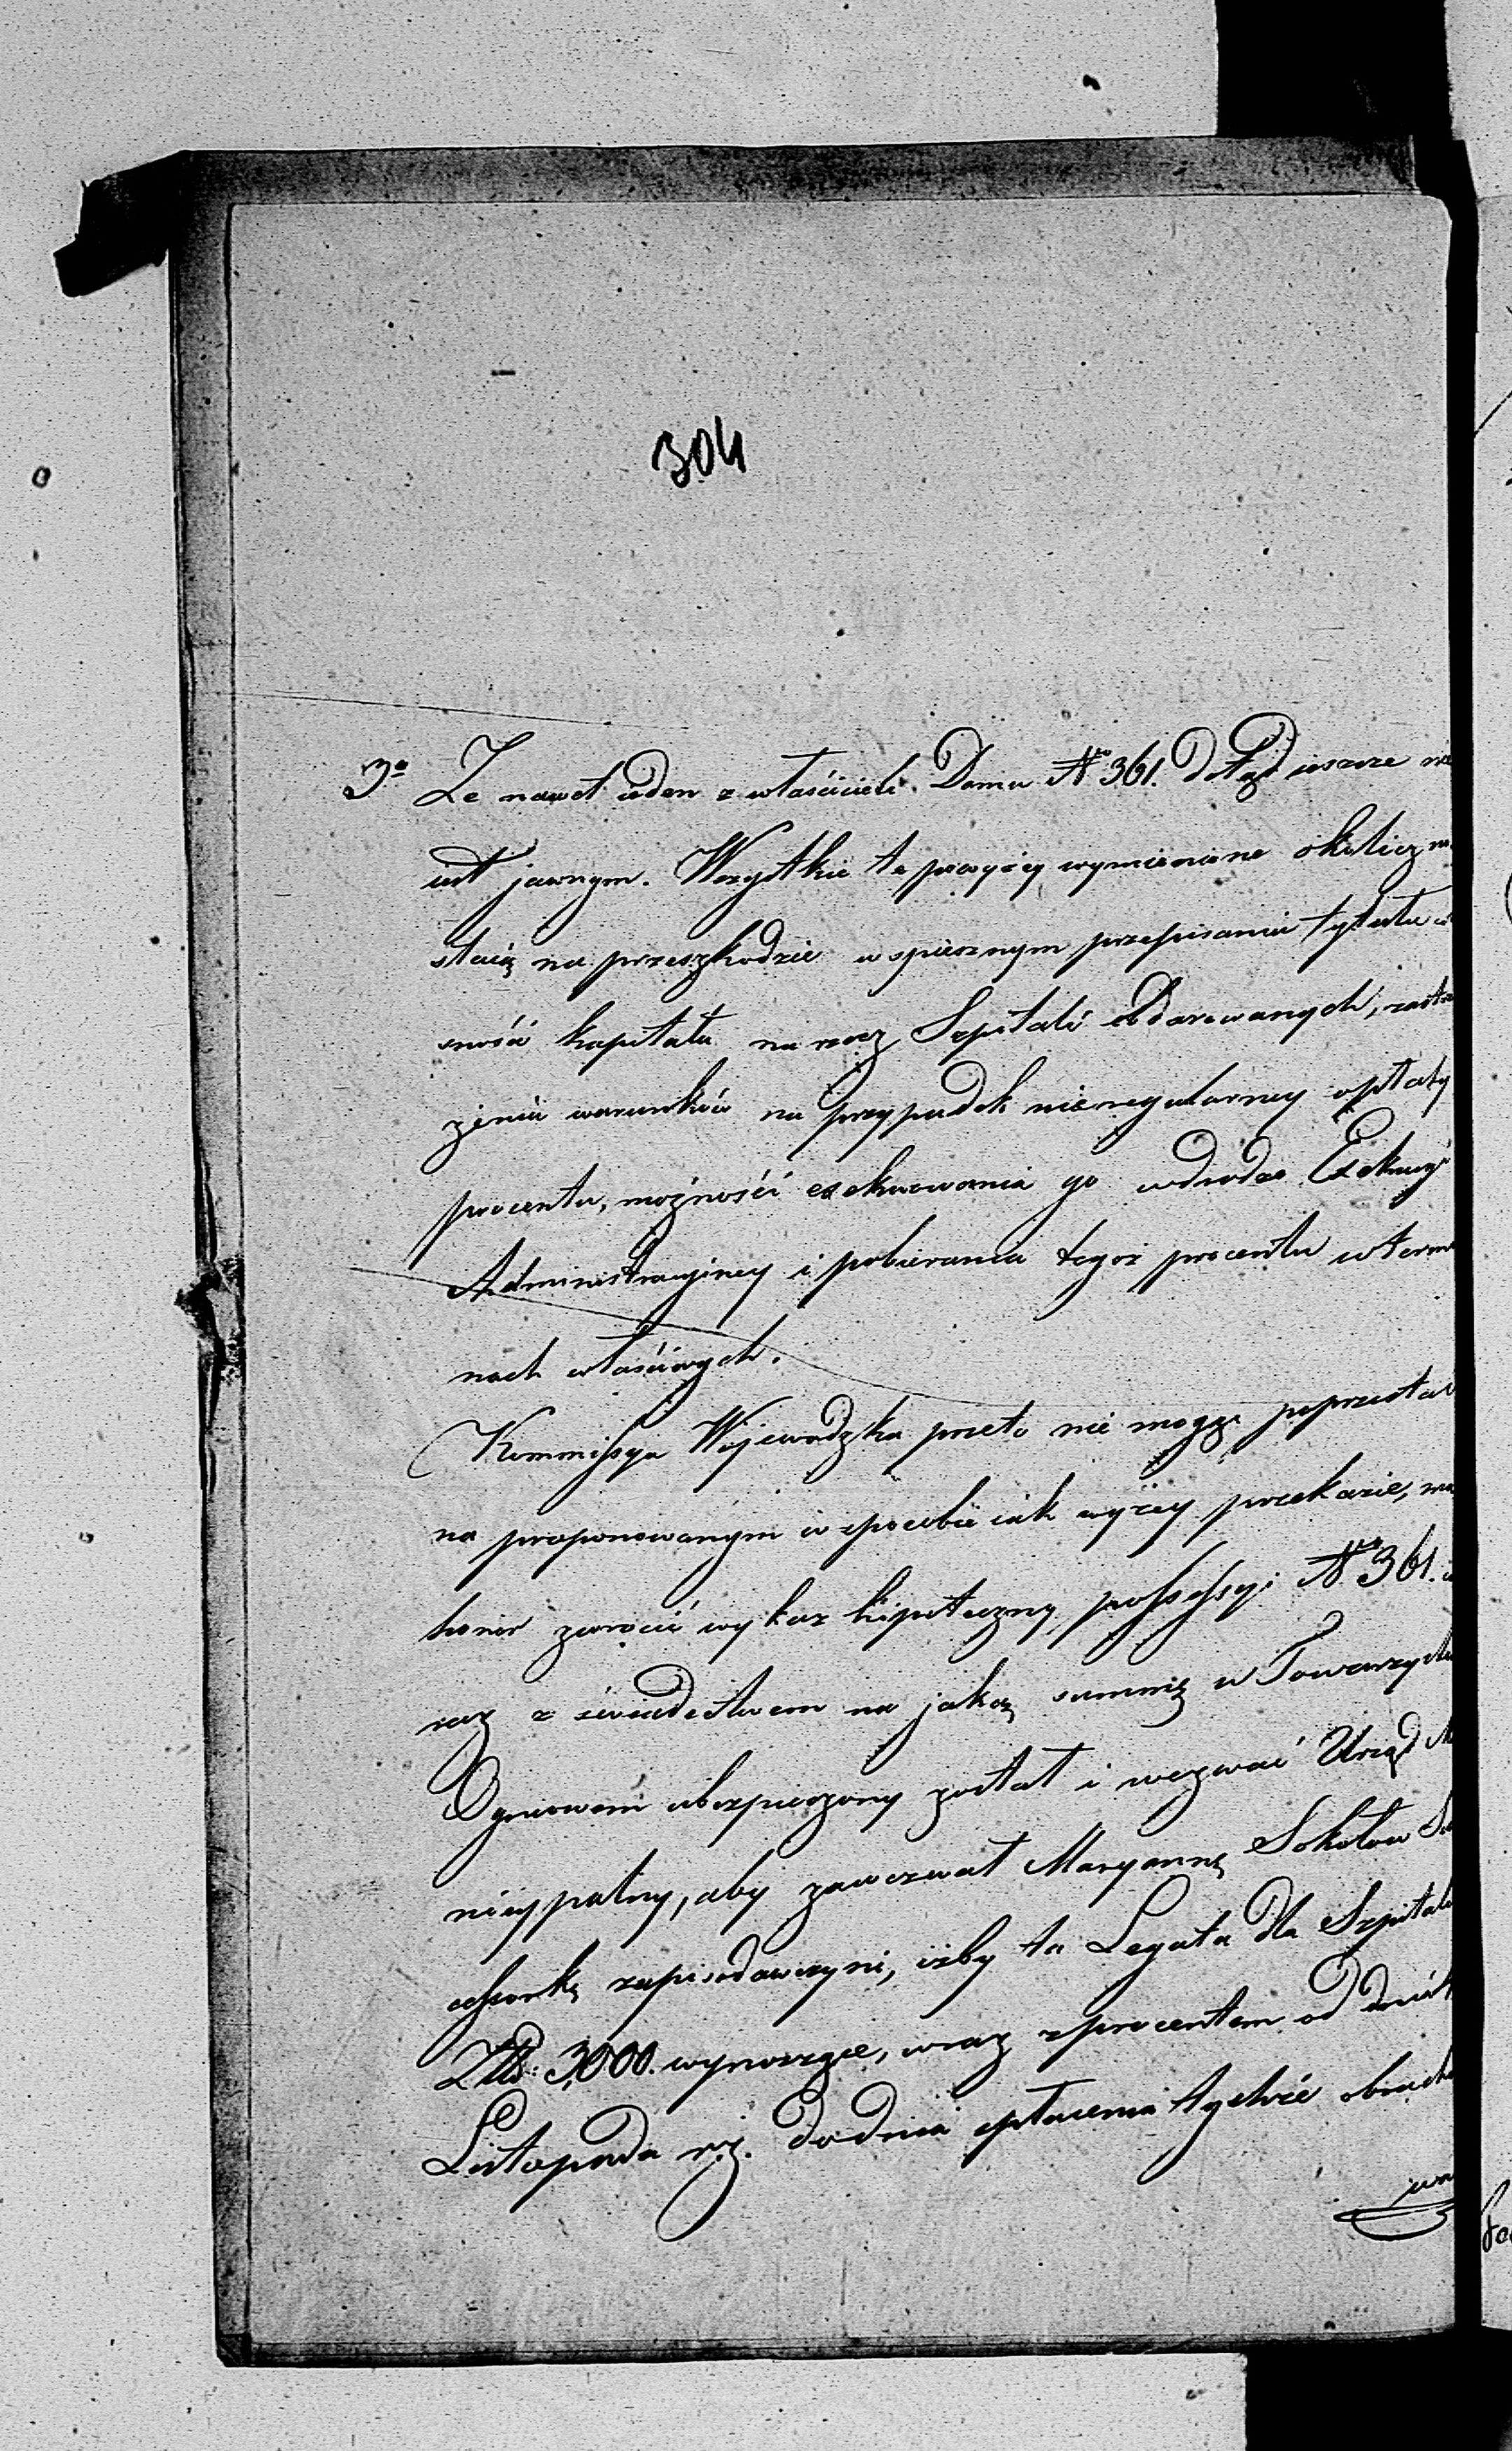 304
3o Że nawet ieden z właścicieli Domu No 361. dotąd ieszcze nie
iest jawnym. Wszystkie te powyżey wymienione okoliczno
staią na przeszkodzie w spiesznym przepisaniu tytułu
sność kapitału na rzecz Szpitali obdarowanych, zastr
żenia warunków na przypadek nieregularney opłaty
procentu, możności exekwowania go w drodze Exekucyi
Administracyiney i pobierania tegoż procentu w termi
nach właściwych.
Kommissya Wojewodzka przeto nie mogąc poprzestać
na proponowanym w sposobie iak wyżey przekazie, ma
honor zwrocić wykaz hipoteczny possessyi No 361. w
raz z świadectwem na jaką summę w Towarzystw
Ogniowem ubezpieczony został i wezwać Urząd Mu
nicypalny, aby zawezwał Maryannę Sokołow
cessorkę zapisodawczyni, iżby ta Legata dla Szpitali
Złł: 3,000. wynoszące, wraz z procentem od dnia
Listopada r.z. do dnia opłacenia tychże obrach